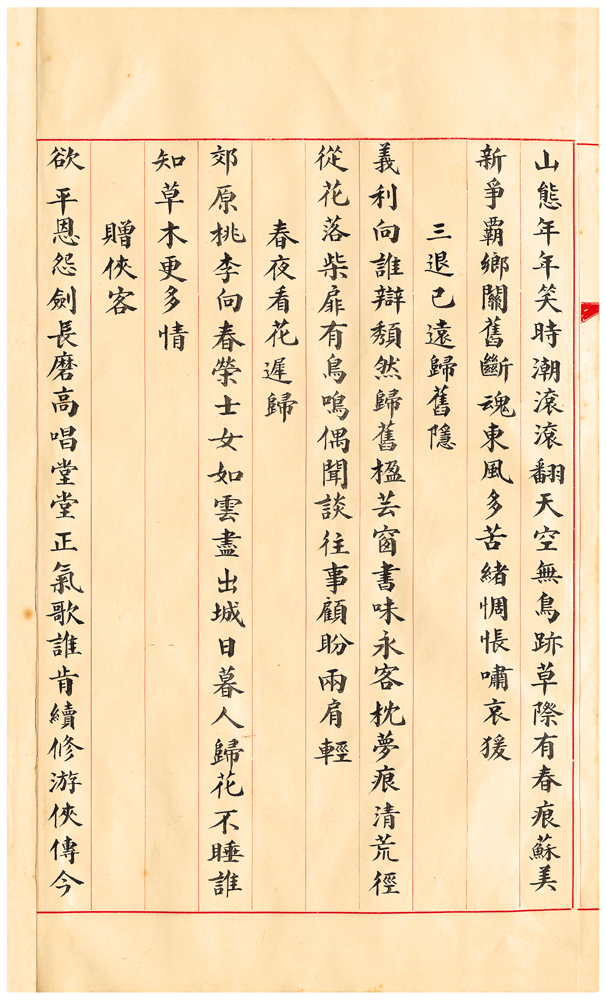 山態年年笑時潮滾滾翻天空無鳥跡草際有春痕蘇美
新爭霸鄉關舊斷魂東風多苦緒惆悵嘯哀猨
三退已遠歸舊隱
義利向誰辯頹然歸舊楹芸窗書味永客枕夢痕清荒徑
從花落柴扉有鳥鳴偶聞談往事顧盼兩肩輕
春夜看花遲歸
郊原桃李向春榮士女如雲盡出城日暮人歸花不睡誰
知草木更多情
贈俠客
欲平恩怨劍長磨高唱堂堂正氣歌誰肯續修游俠傳今